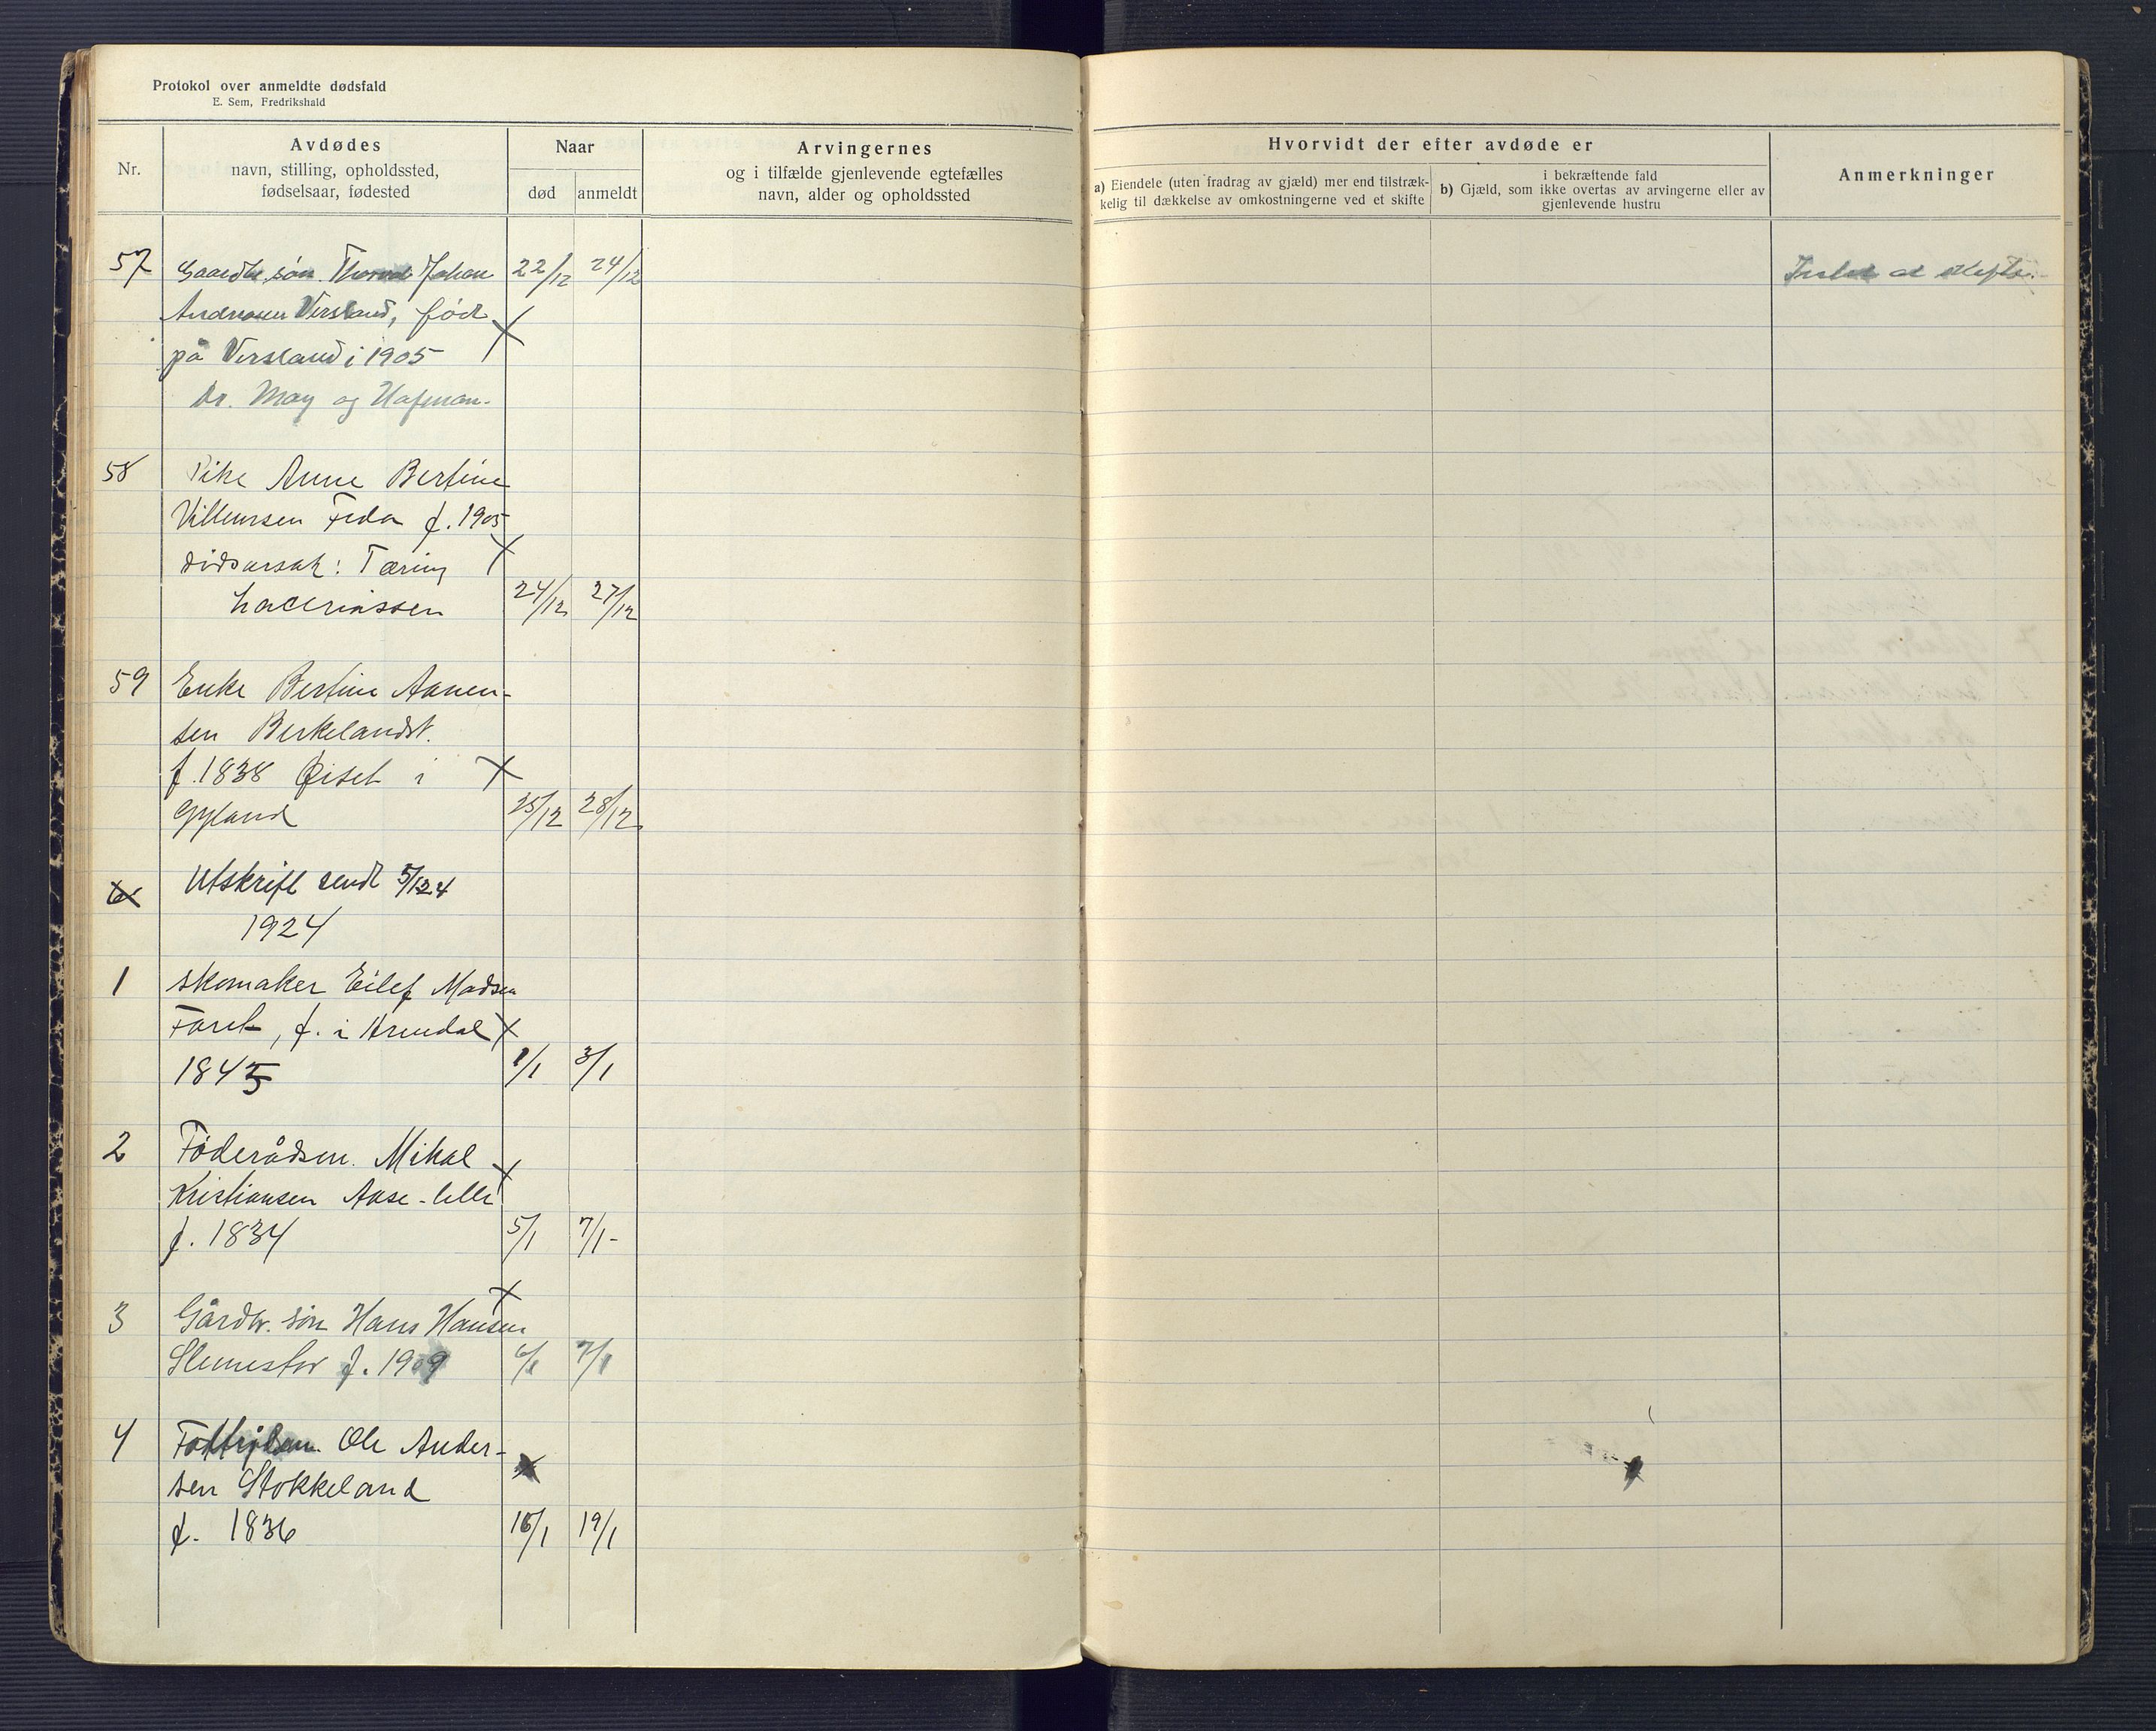 Protokol over anmeldte dødsfald
E. Sem, Fredrikshald
Nr.
Avdødes
navn, stilling, opholdssted,
fødselsaar, fødested
Naar
død
anmeldt
Arvingernes
og i tilfælde gjenlevende egtefælles
navn, alder og opholdssted
Hvorvidt der efter avdøde er
a) Eiendele (uten fradrag av gjæld) mer end tilstræk-
kelig til dækkelse av omkostningerne ved et skifte
i bekræftende fald
b) Gjæld, som ikke overtas av arvingerne eller av
gjenlevende hustru
Anmerkninger
57 Gaardbr. søn Johan 22/12 24/12
Andreassen Versland, født
på Versland i 1905
Dr. May og Hofman.
58 Pike Anne Bertine
Villumsen Feda f. 1905
dødsarsak: Tæring
24/12 27/12
59 Enke Bertine Aanen-
sen Birkelandst.
f. 1838 Øiset i
Gyland 25/12 28/12
Utskrift sendt 5/1 24
1924
1 Skomaker Eilef Madsen
Faret, f. i Arendal
1845 1/1 3/1
2 Føderådsm. Mikal
Kristiansen Aase-lille
f. 1834 5/1 7/1-
3 Gårdbr. søn Hans Hansen
f. 1909 6/1 7/1
4 Ole Ander-
sen Stokkeland
f. 1836 16/1 19/1